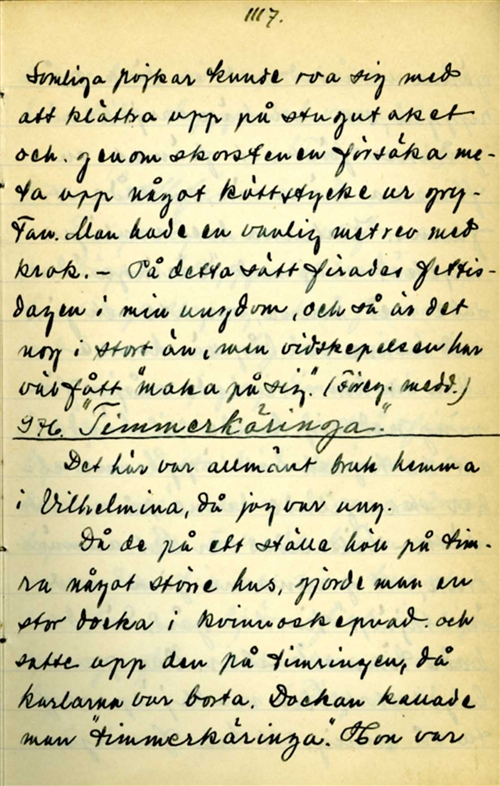 1117.
Somliga pojkar kunde roa sig med
att klättra upp på stugutaket
och. genom skorstenen försöka me-
ta upp något köttstycke ur gry-
tan. Man hade en vanlig metrev med
krok. – På detta sätt firades fettis-
dagen i min ungdom, och så är det
nog i stort än, men vidskepelsen har
väl fått "maka på sig." (Föreg. medd.)
976. "Timmerkäringa".
Det här var allmänt bruk hemma
i Vilhelmina, då jag var ung.
Då de på ett ställe höll på tim-
ra något större hus, gjorde man en
stor docka i kvinnoskepnad. och
satte upp den på timringen, då
karlarna var borta. Dockan kallade
man "timmerkäringa". Hon var